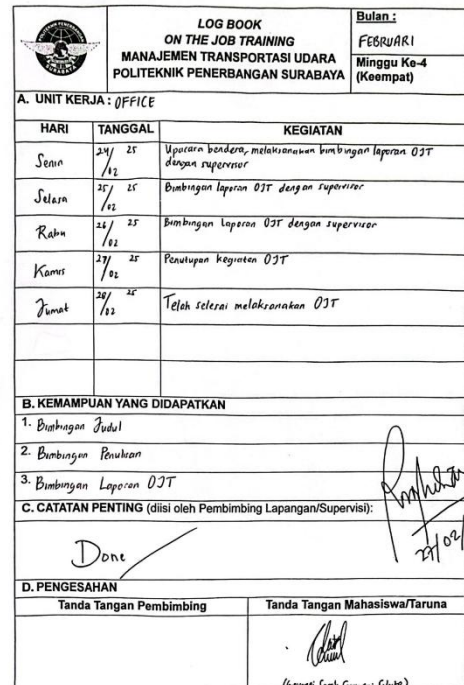 LOG BOOK
ON THE JOB TRAINING
MANAJEMEN TRANSPORTASI UDARA
POLITEKNIK PENERBANGAN SURABAYA
Bulan :
FEBRUARI
Minggu Ke-4
(Keempat)
A. UNIT KERJA : OFFICE
HARI TANGGAL KEGIATAN
Senin 24/02 25 Upacara bendera, melaksanakan bimbingan laporan OJT
dengan supervisor
Selasa 25/02 25 Bimbingan laporan OJT dengan supervisor
Rabu 26/02 25 Bimbingan Laporan OJT dengan supervisor
Kamis 27/02 25 Penutupan kegiatan OJT
Jumat 28/02 25 Telah selesai melaksanakan OJT
B. KEMAMPUAN YANG DIDAPATKAN
1. Bimbingan Judul
2. Bimbingan Penulisan
3. Bimbingan Laporan OJT
C. CATATAN PENTING (diisi oleh Pembimbing Lapangan/Supervisi):
Done
27/02/
D. PENGESAHAN
Tanda Tangan Pembimbing Tanda Tangan Mahasiswa/Taruna